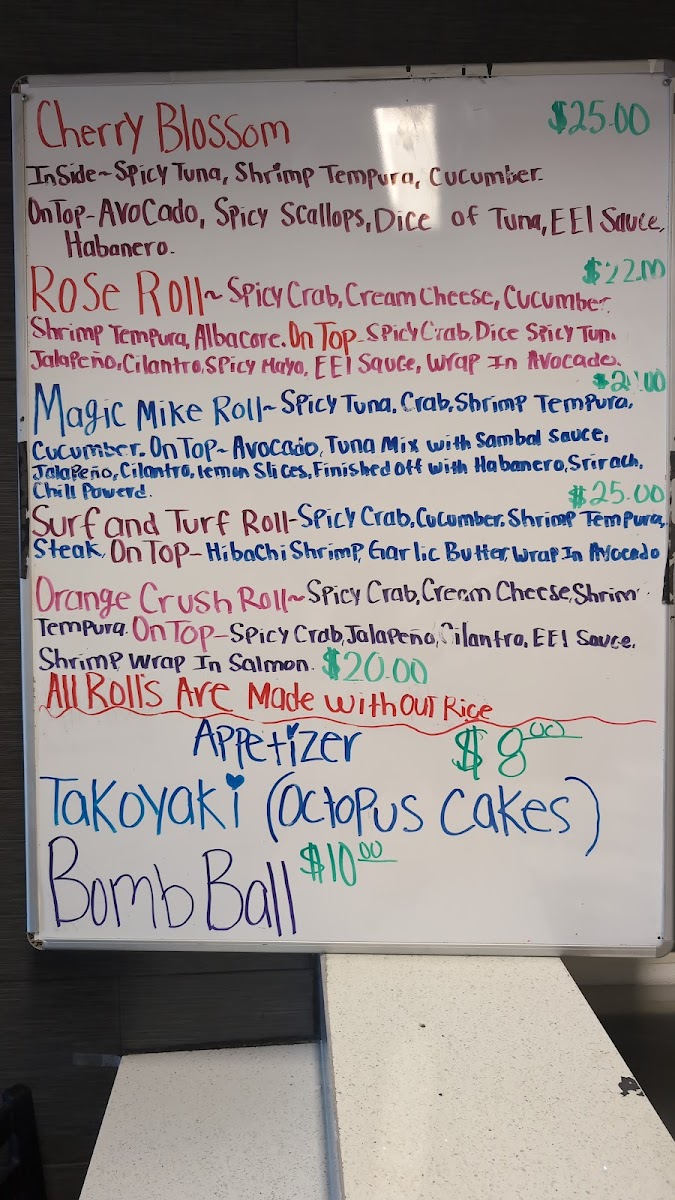 Cherry Blossom $25.00
InSide~Spicy Tuna, Shrimp Tempura, Cucumber.
OnTop-Avocado, Spicy Scallops, Dice of Tuna, EEl Sauce,
Habanero.
$22.00
Rose Roll~Spicy Crab, Cream Cheese, Cucumber
Shrimp Tempura, Albacore. OnTop-Spicy Crab, Dice Spicy Tun.
Jalapeño, Cilantro, Spicy Mayo, EEl Sauce, Wrap In Avocado.
Magic Mike Roll~Spicy Tuna, Crab, Shrimp Tempura,
Cucumber. OnTop~Avocado, Tuna Mix with Sambal Sauce,
Jalapeño, Cilantro, lemon Slices, Finished off with Habanero, Srirach,
Chill Powerd.
$25.00
Surf and Turf Roll-Spicy Crab, Cucumber, Shrimp Tempura,
Steak, OnTop-Hibachi Shrimp, Garlic Butter, Wrap In Avocado
Orange Crush Roll~Spicy Crab, Cream Cheese, Shrim
Tempura. OnTop-Spicy Crab, Jalapeño, Cilantro, EEl Sauce,
Shrimp Wrap In Salmon. $20.00
All Rolls Are Made without Rice
Appetizer $8.00
Takoyaki (Octopus Cakes)
Bomb Ball $10.00